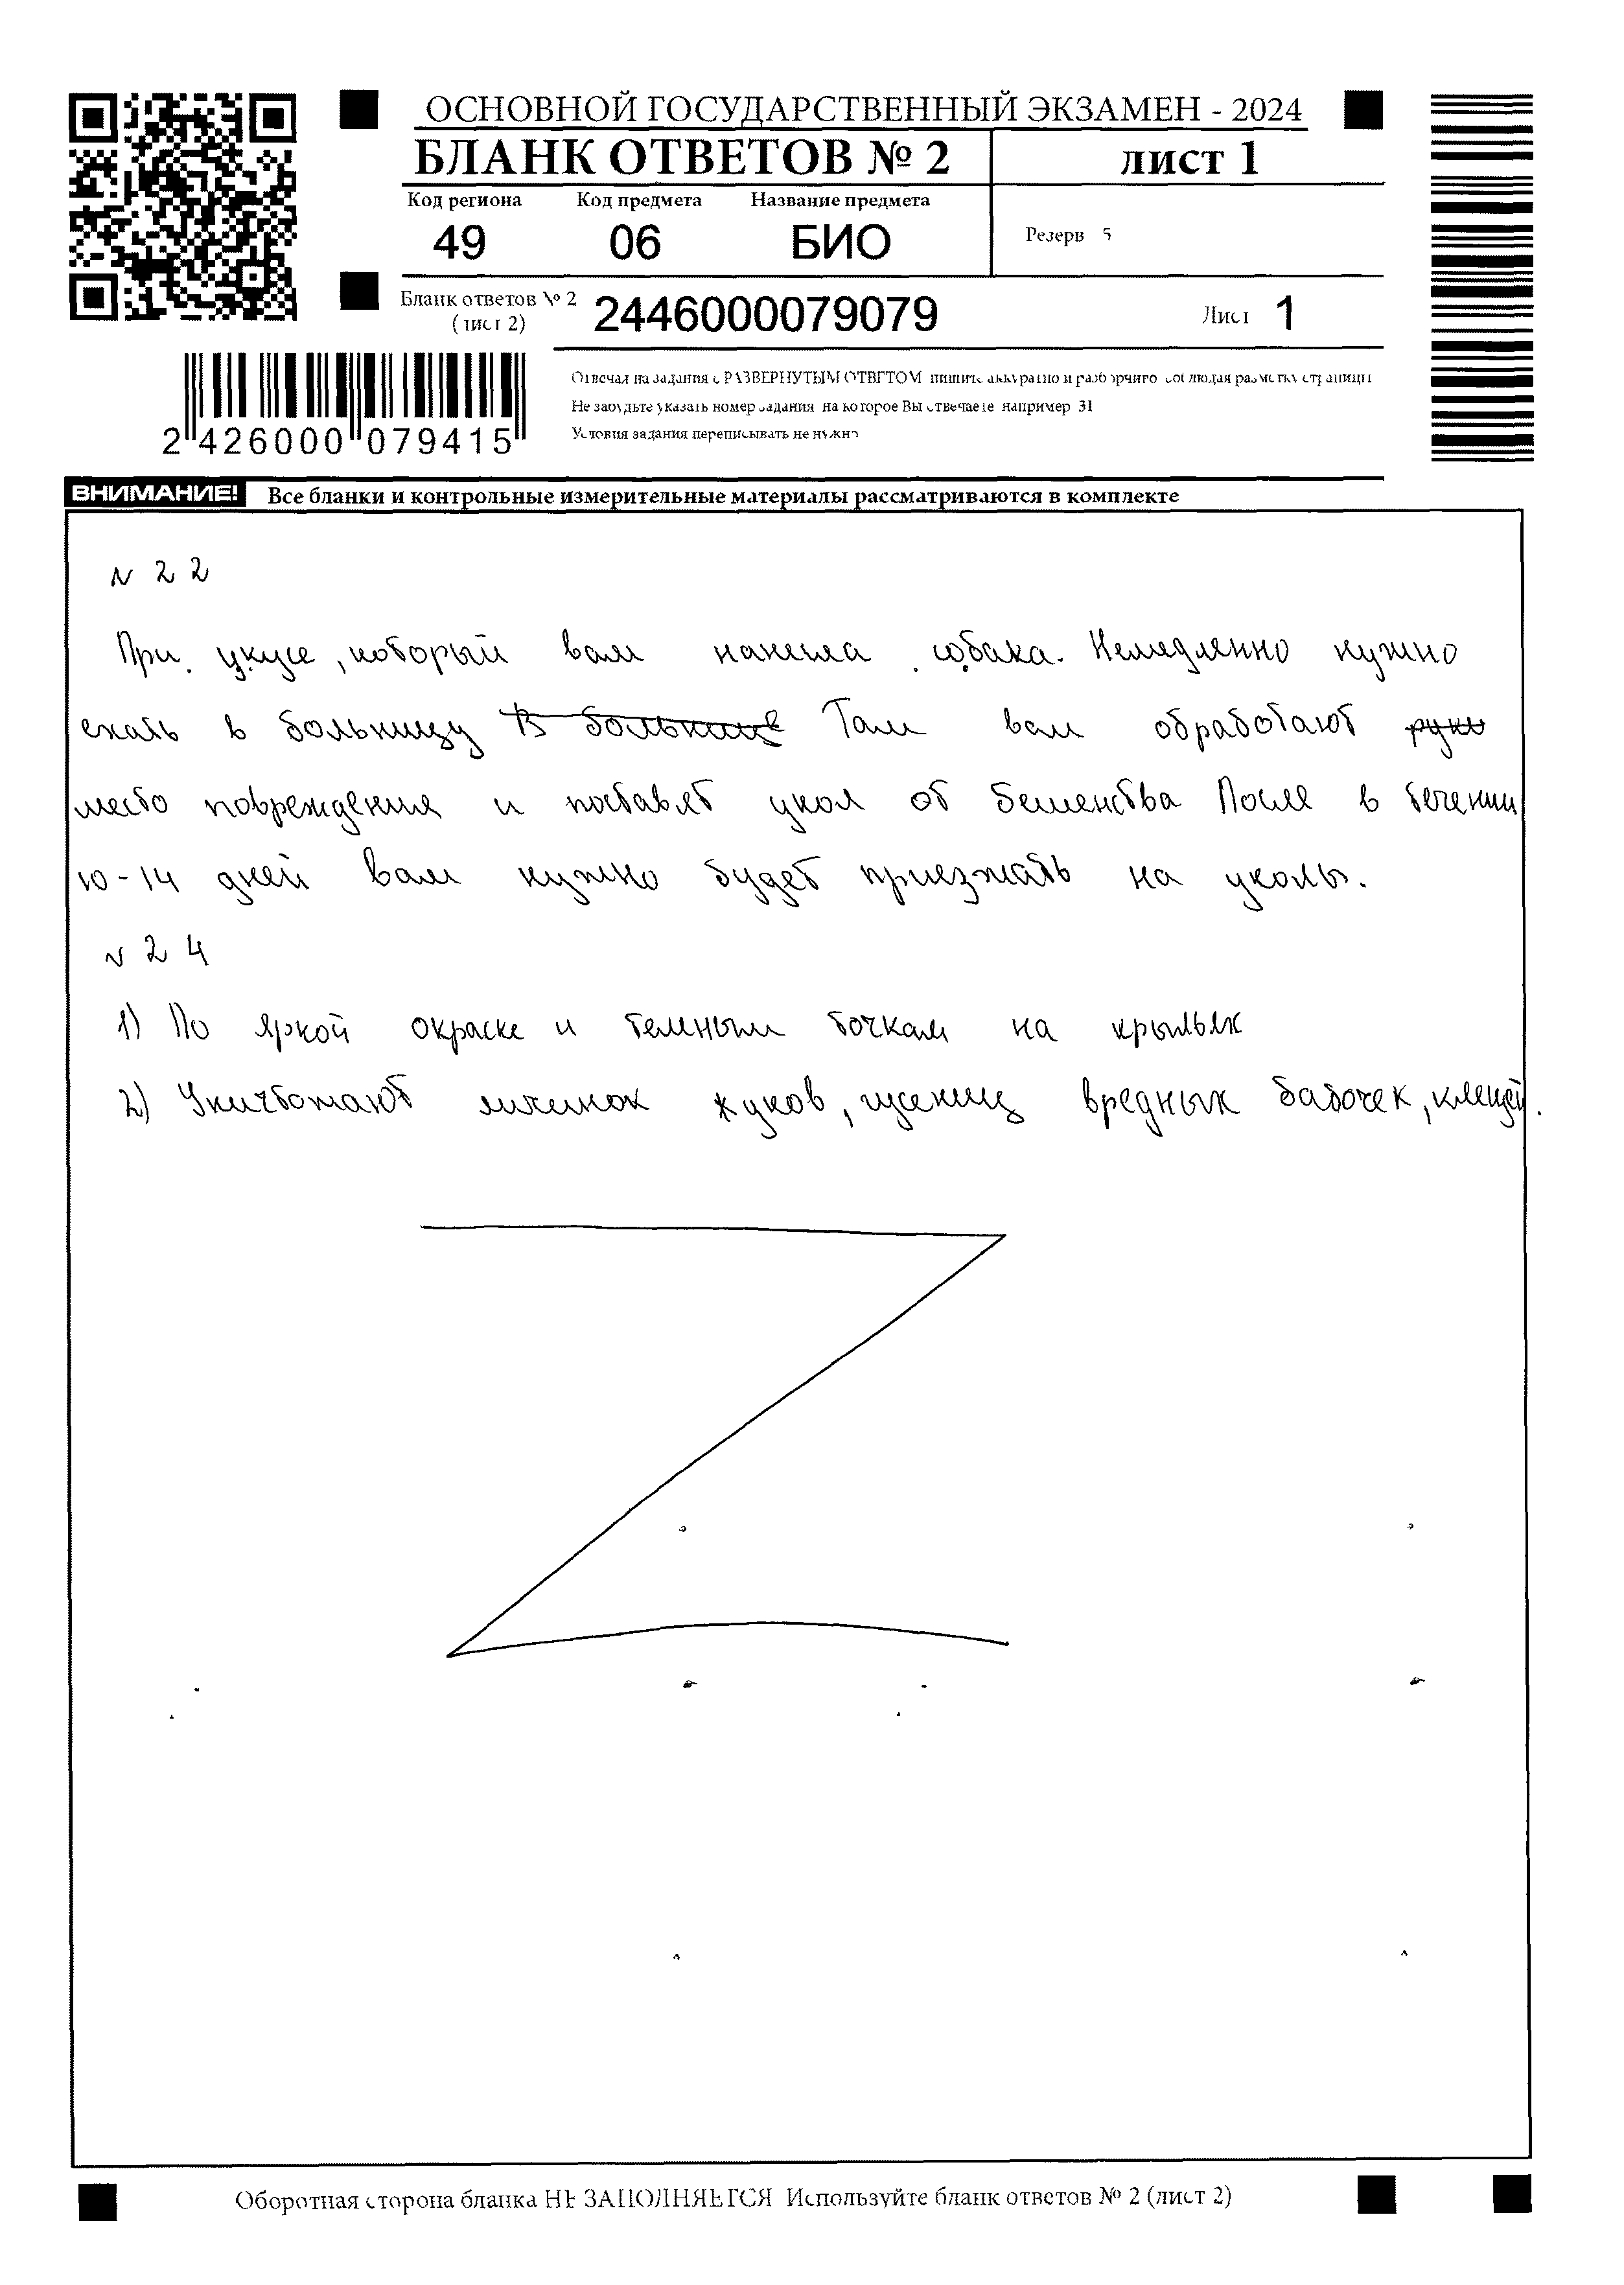 ОСНОВНОЙ ГОСУДАРСТВЕННЫЙ ЭКЗАМЕН - 2024
БЛАНК ОТВЕТОВ № 2 лист 1
Код региона Код предмета Название предмета
49 06 БИО
Резерв 5
Бланк ответов № 2
(лист 2) 2446000079079 Лист 1
2 426000 079415
Отвечая на задания с РАЗВЕРНУТЫМ ОТВЕТОМ пишите аккуратно и разборчиво соблюдая разметку страницы
Не забудьте указать номер задания на которое Вы отвечаете например 31
Условия задания переписывать не нужно
ВНИМАНИЕ! Все бланки и контрольные измерительные материалы рассматриваются в комплекте
N 22
При укусе, который вам нанесла собака. Немедленно нужно
ехать в больницу В больнице Там вам обработают руки
место повреждения и поставят укол от бешенства После в течении
10-14 дней вам нужно будет приезжать на уколы.
N 24
1) По яркой окраске и темным точкам на крыльях
2) Уничтожают личинок жуков, гусениц вредных бабочек, клещей.
Оборотная сторона бланка НЕ ЗАПОЛНЯЕТСЯ Используйте бланк ответов № 2 (лист 2)